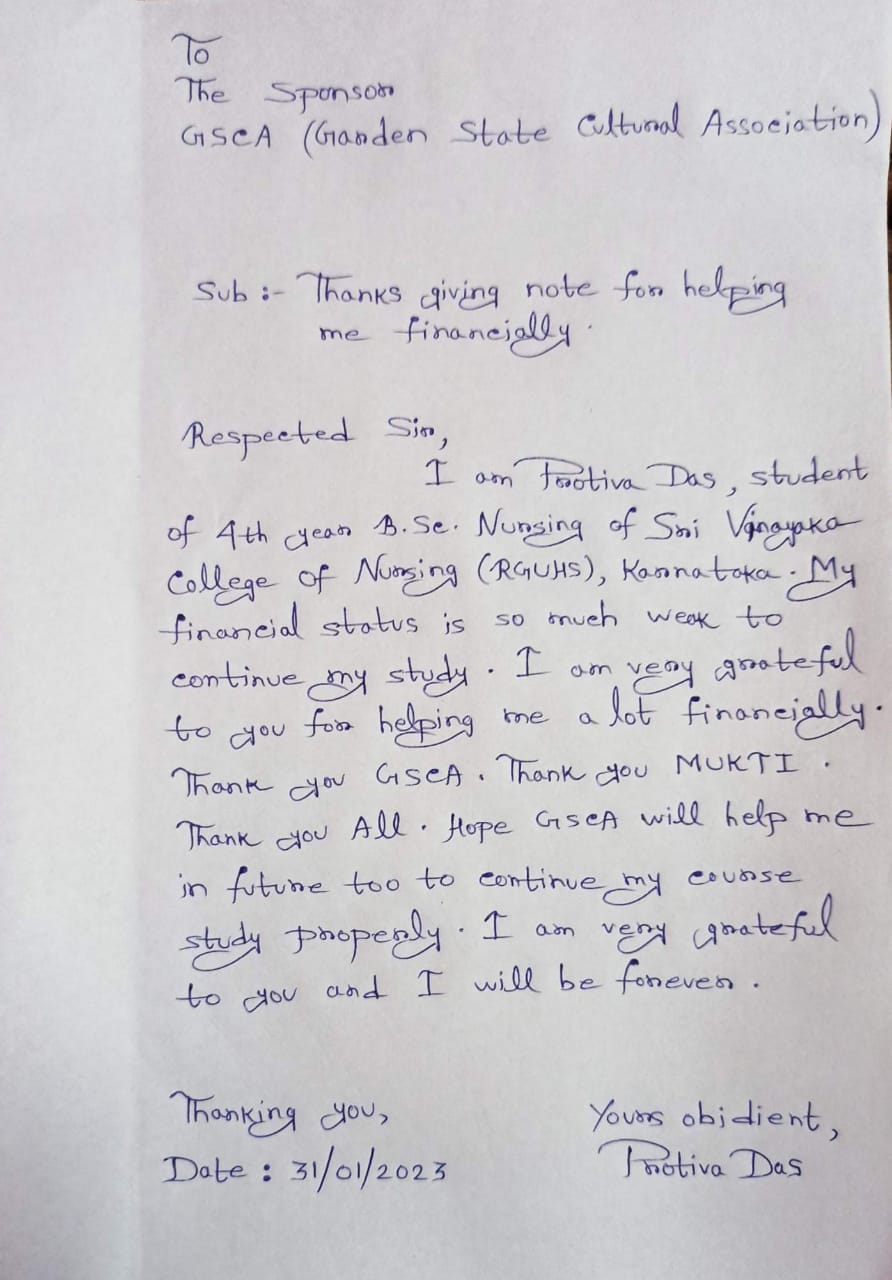 To
The Sponsor
GSCA (Garden State Cultural Association)
Sub :- Thanks giving note for helping
me financially.
Respected Sir,
I am Protiva Das, student
of 4th year B.Sc. Nursing of Sri Vinayaka
College of Nursing (RGUHS), Karnataka. My
financial status is so much weak to
continue my study. I am very grateful
to you for helping me a lot financially.
Thank you GSCA. Thank you MUKTI.
Thank you All. Hope GSCA will help me
in future too to continue my course
study properly. I am very grateful
to you and I will be forever.
Thanking you,
Yours obidient,
Date : 31/01/2023
Protiva Das